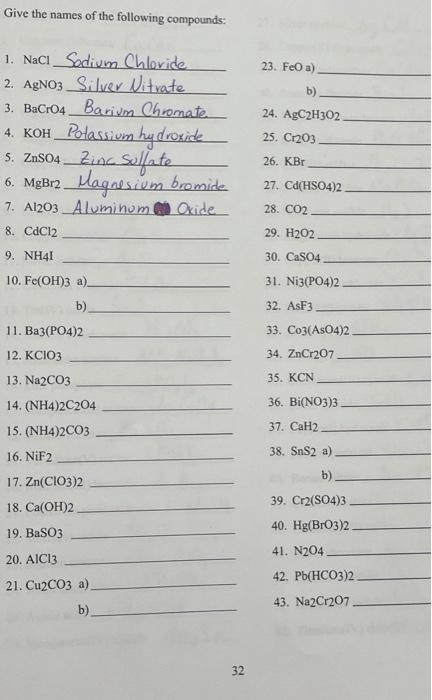 Give the names of the following compounds:
1. NaCl Sodium Chloride
2. AgNO3 Silver Nitrate
3. BaCrO4 Barium Chromate
4. KOH Potassium hydroxide
5. ZnSO4 Zinc Sulfate
6. MgBr2 Magnesium bromide
7. Al2O3 Aluminum Oxide
8. CdCl2
9. NH4I
10. Fe(OH)3 a)
b)
11. Ba3(PO4)2
12. KClO3
13. Na2CO3
14. (NH4)2C2O4
15. (NH4)2CO3
16. NiF2
17. Zn(ClO3)2
18. Ca(OH)2
19. BaSO3
20. AlCl3
21. Cu2CO3 a)
b)
23. FeO a)
b)
24. AgC2H3O2
25. Cr2O3
26. KBr
27. Cd(HSO4)2
28. CO2
29. H2O2
30. CaSO4
31. Ni3(PO4)2
32. AsF3
33. Co3(AsO4)2
34. ZnCr2O7
35. KCN
36. Bi(NO3)3
37. CaH2
38. SnS2 a)
b)
39. Cr2(SO4)3
40. Hg(BrO3)2
41. N2O4
42. Pb(HCO3)2
43. Na2Cr2O7
32